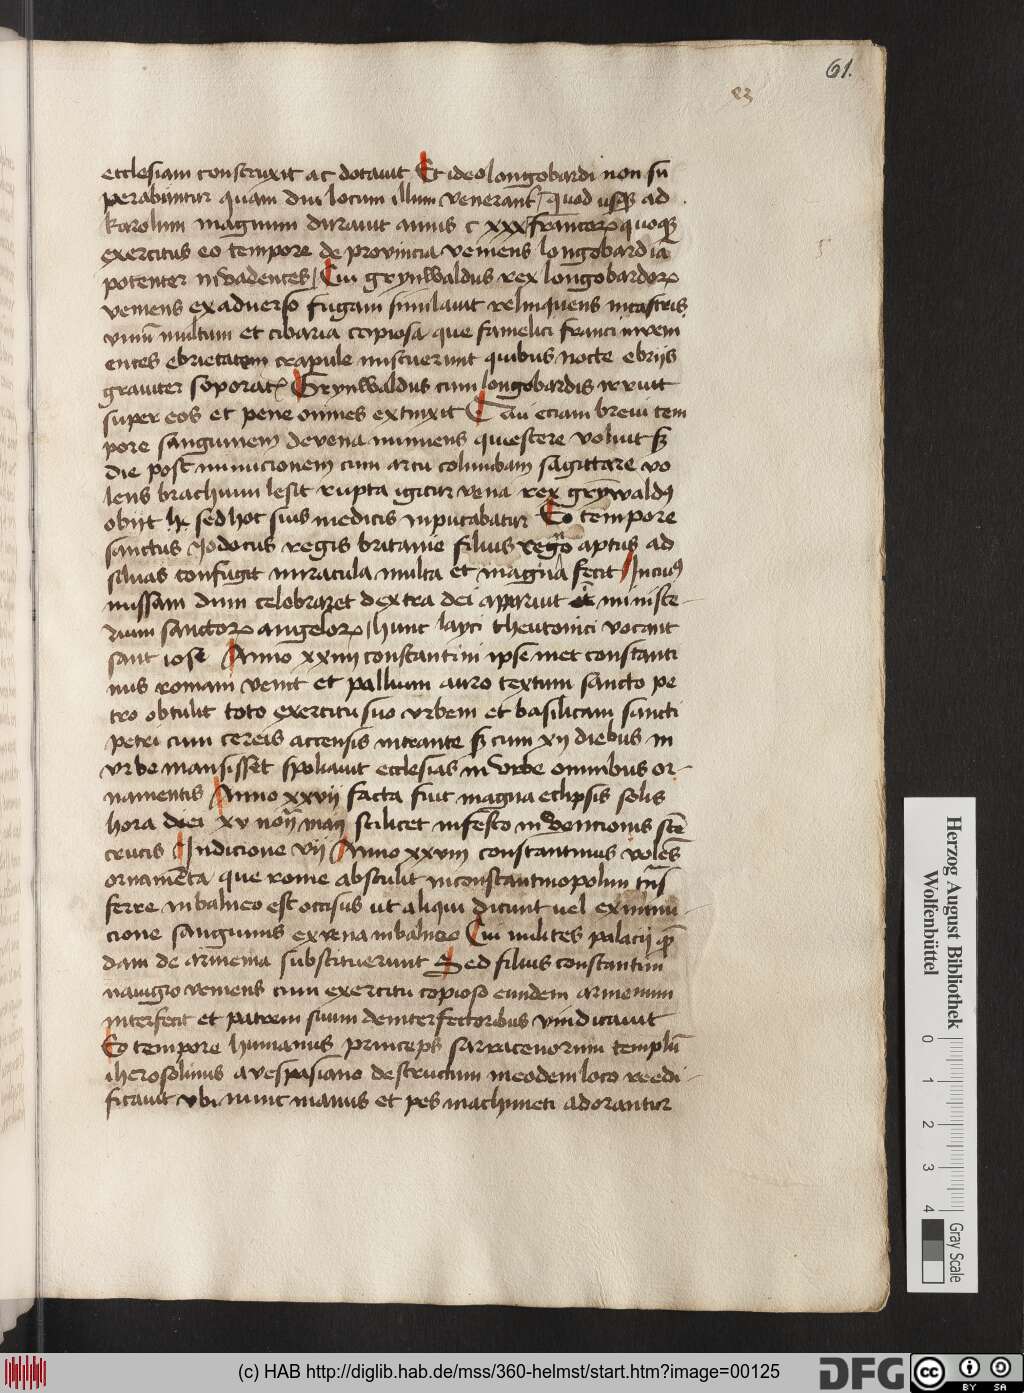 61.
23
ecclesiam construxit ac dotauit Et ideo longobardi non su
perabuntur quam diu locum illum venerant~ / quod usq3 ad
karolum magnum durauit annis c xxx francor~ quoq3
exercitus eo tempore de prouincia veniens longobardiā
potenter invadentes / Cui grynwaldus rex longobardor~
veniens ex aduerso fugam similauit relinquens in castris
vinū multum et cibaria copiosa que famelici franci inveni
entes ebrietatem crapule miscuerunt quibus nocte ebriis
grauiter soporat~ Grynwaldus cum longobardis irruit
super eos et pene omnes extinxit Cui etiam breui tem
pore sanguinem de vena minuens quiescere voluit s3
die post minucionem cum arcu columbam sagittare vo
lens brachium lesit rupta igitur vena rex grynwaldꝰ
obiit hec sed hoc suis medicis inputabatur Eo tempore
sanctus Jodocus regis britanie filius regno aptus ad
siluas confugit miracula multa et magna fecit /
missam dum celebraret dextra dei apparuit et ministe-
rium sanctor~ angelor~ / hunc layci theutonici vocant
sant iose Anno xxiiij constantini ipse met constanti
nus romam venit et pallium auro textum sancto pe
tro obtulit toto exercitu suo vrbem et basilicam sancti
petri cum cereis accensis intrante s3 cum xij diebus in
vrbe mansisset spoliauit ecclesias in vrbe omnibus or-
namentis Anno xxvij facta fuit magna eclipsis solis
hora diei xv scilicet in festo invencionis scē
crucis Indicione vij Anno xxviij constantinus volēs
ornamēta que rome abstulit in constantinopolim tns
ferre in balneo est occisus ut aliqui dicunt uel ex minu-
cione sanguinis ex vena in balneo Cui milites palacij
dam de armenia substituerunt Sed filius constantini
nauigio veniens cum exercitu copioso eundem armenum
interfecit et patrem suum de interfectoribus vindicauit
Eo tempore humanus princeps sarracenorum templū
iherosolimis a vespasiano destructum in eodem loco reedi-
ficauit vbi nunc manus et pes machmeti adorantur
Herzog August Bibliothek
Wolfenbüttel
0 1 2 3 4
Gray Scale
(c) HAB http://diglib.hab.de/mss/360-helmst/start.htm?image=00125
DFG
cc
BY SA